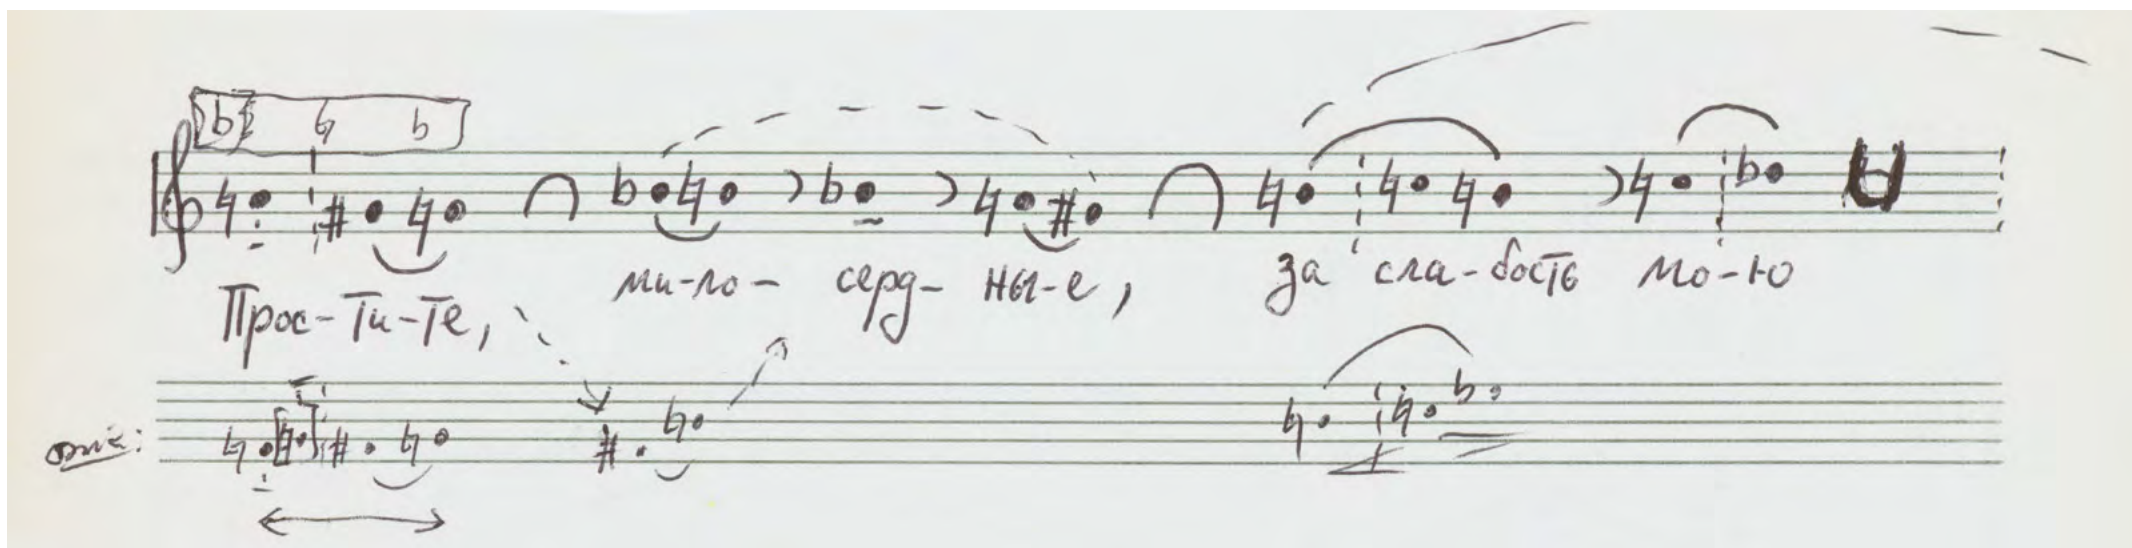 Прос-ти-те, ми-ло-серд-ны-е, за сла-бость мо-ю